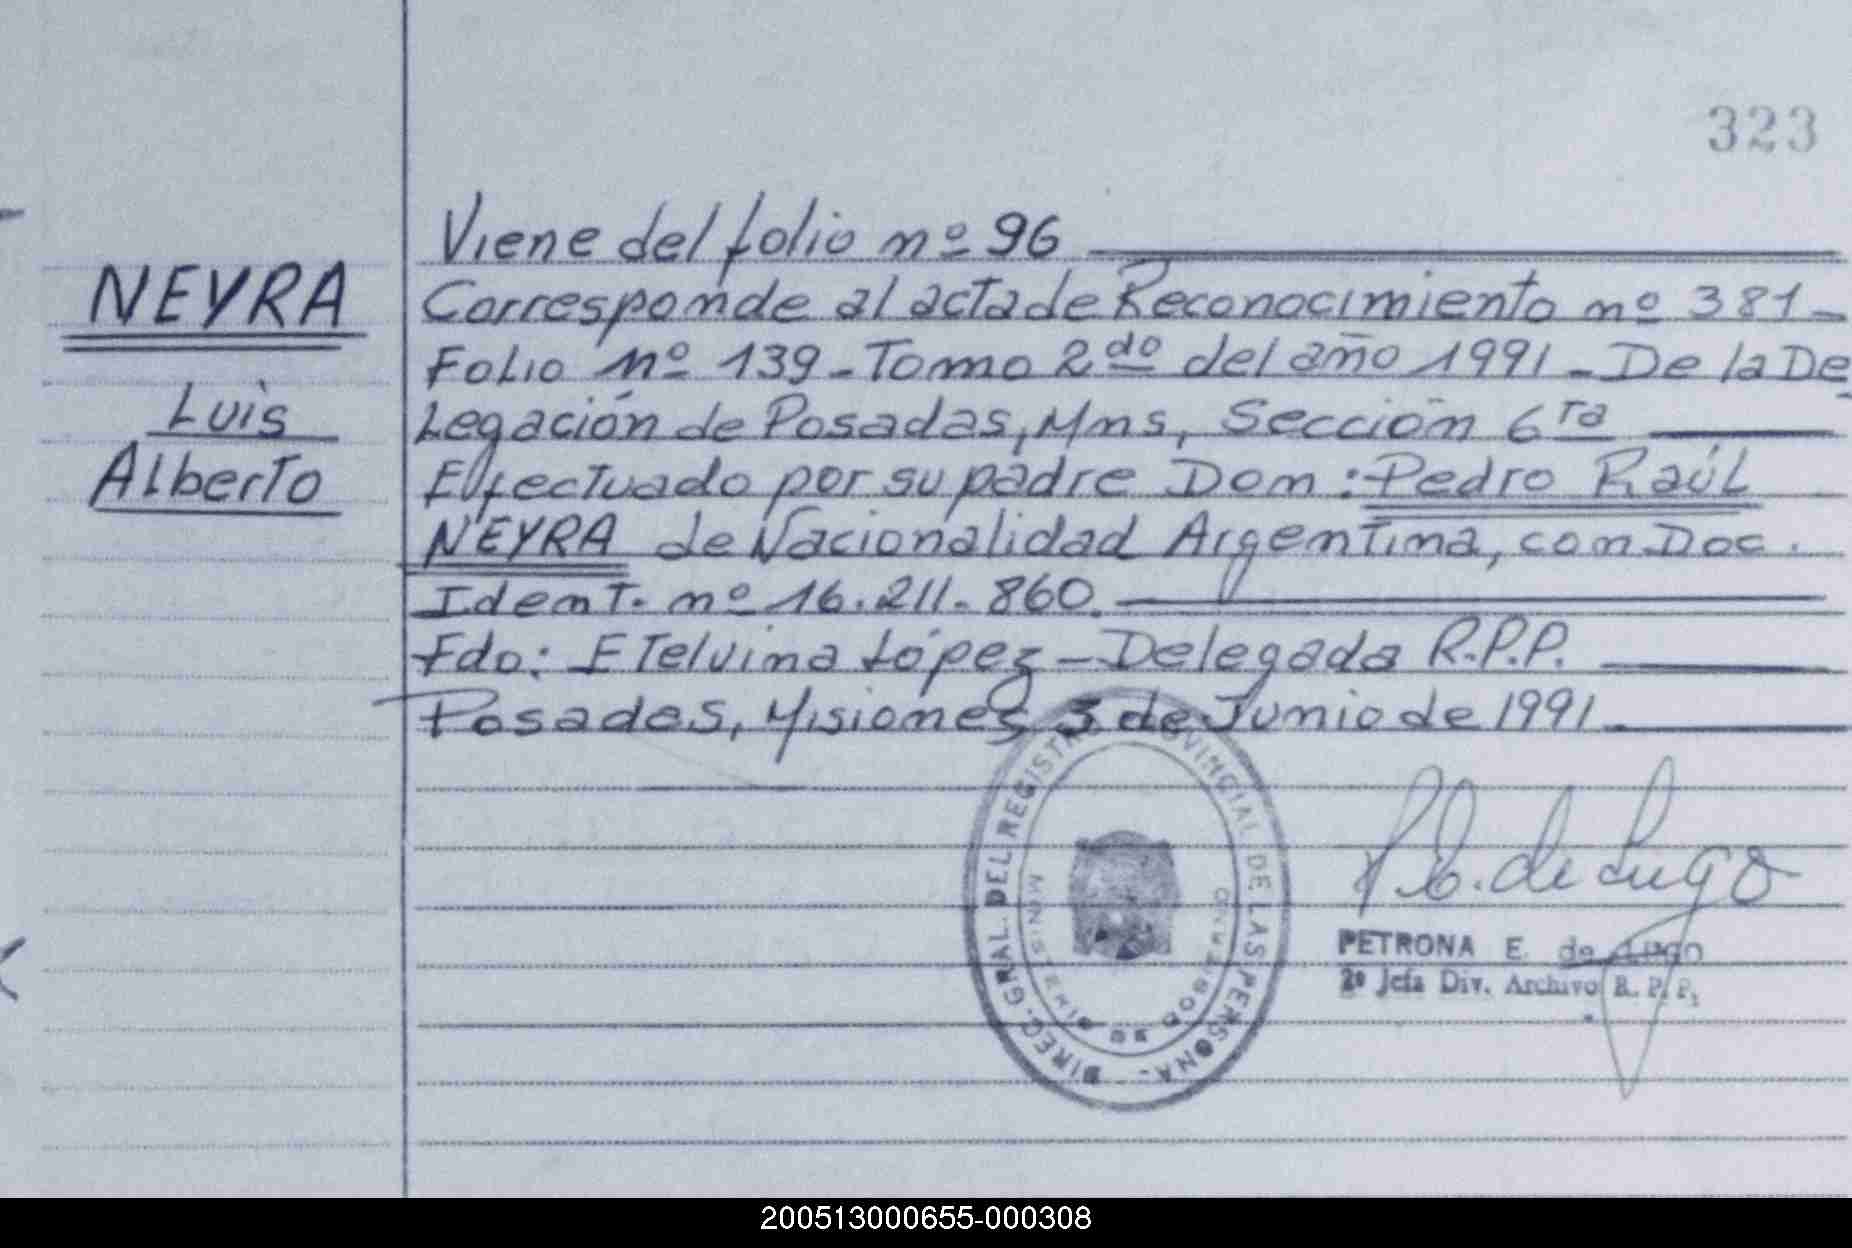 323
NEYRA
Luis
Alberto
Viene del folio nº 96
Corresponde al acta de Reconocimiento nº 381-
Folio nº 139-Tomo 2do del año 1991-De la De
Legación de Posadas, Mns, Sección 6ta
Effectuado por su padre Dom: Pedro Raúl
NEYRA de Nacionalidad Argentina, com Doc.
Ident. nº 16.211.860.
Fdo: ETelvina López-Delegada R.P.P.
Posadas, Misiones, 3 de Junio de 1991
DIREC. GRAL. DEL REGISTRO PROVINCIAL DE LAS PERSONA-
MINISTERIO DE GOBIERNO
P.E. de Lugo
PETRONA E. de Lugo
2º Jefa Div. Archivo R. P. P.
200513000655-000308